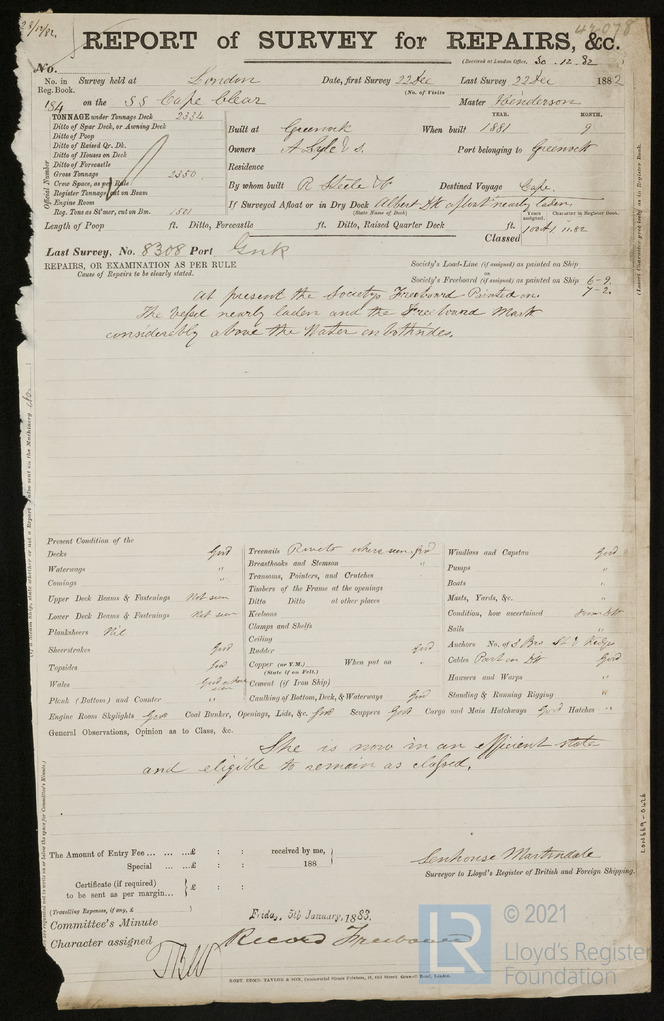 REPORT of SURVEY for REPAIRS, &c.
(Received at London Office, 30.12.82
No.
No. in Reg. Book.
Survey held at London Date, first Survey 22 Dec Last Survey 22 Dec 1882
(No. of Visits
184 on the SS Cape Clear Master Henderson
TONNAGE under Tonnage Deck 2334
Ditto of Spar Deck, or Awning Deck
Ditto of Poop
Ditto of Raised Qr. Dk.
Ditto of Houses on Deck
Ditto of Forecastle
Gross Tonnage 2350
Crew Space, as per Rule
Register Tonnage cut on Beam
Engine Room
Reg. Tons as St'mer, cut on Bm. 1501
Official Number
YEAR. MONTH.
Built at Greenock When built 1881 9
Owners A Lyle & S. Port belonging to Greenock
Residence
By whom built R Steele & Co Destined Voyage Cape.
If Surveyed Afloat or in Dry Dock Albert Dk afloat nearly laden
(State Name of Dock)
Years assigned. Character in Register Book.
Length of Poop ft. Ditto, Forecastle ft. Ditto, Raised Quarter Deck ft.
Classed 100A1 11.82
Last Survey, No. 8308 Port Gnk
REPAIRS, OR EXAMINATION AS PER RULE
Cause of Repairs to be clearly stated.
Society's Load-Line (if assigned) as painted on Ship
or
Society's Freeboard (if assigned) as painted on Ship 6-9
7-2.
At present the Societys Freeboard Painted on
The vessel nearly laden and the Freeboard Mark
considerably above the Water on bothsides.
Present Condition of the
Decks Good
Waterways "
Comings "
Upper Deck Beams & Fastenings Not seen
Lower Deck Beams & Fastenings Not seen
Planksheers Nil
Sheerstrakes Good
Topsides Good
Wales Good where seen
Plank (Bottom) and Counter "
Treenails Rivets where seen good
Breasthooks and Stemson "
Transoms, Pointers, and Crutches
Timbers of the Frame at the openings
Ditto Ditto at other places
Keelsons
Clamps and Shelfs
Ceiling
Rudder Good
Copper (or Y.M.) When put on
(State if on Felt.)
Cement (if Iron Ship)
Caulking of Bottom, Deck, & Waterways Good
Windlass and Capstan Good
Pumps "
Boats "
Masts, Yards, &c. "
Condition, how ascertained from Dk
Sails "
Anchors No. of 3 Brs St & Kedge
Cables Part on Dk Good
Hawsers and Warps "
Standing & Running Rigging "
Engine Room Skylights Good Coal Bunker, Openings, Lids, &c. Good Scuppers Good Cargo and Main Hatchways Good Hatches "
General Observations, Opinion as to Class, &c.
She is now in an efficient state
and eligible to remain as classed.
The Amount of Entry Fee ... ... ...£ : : received by me,
Special ... ...£ : : 188
Certificate (if required) to be sent as per margin... £ : :
(Travelling Expenses, if any, £ )
Senhouse Martindale
Surveyor to Lloyd's Register of British and Foreign Shipping.
Committee's Minute Friday, 5th January, 1883.
Character assigned Record Freeboard
© 2021
LR
Lloyd's Register
Foundation